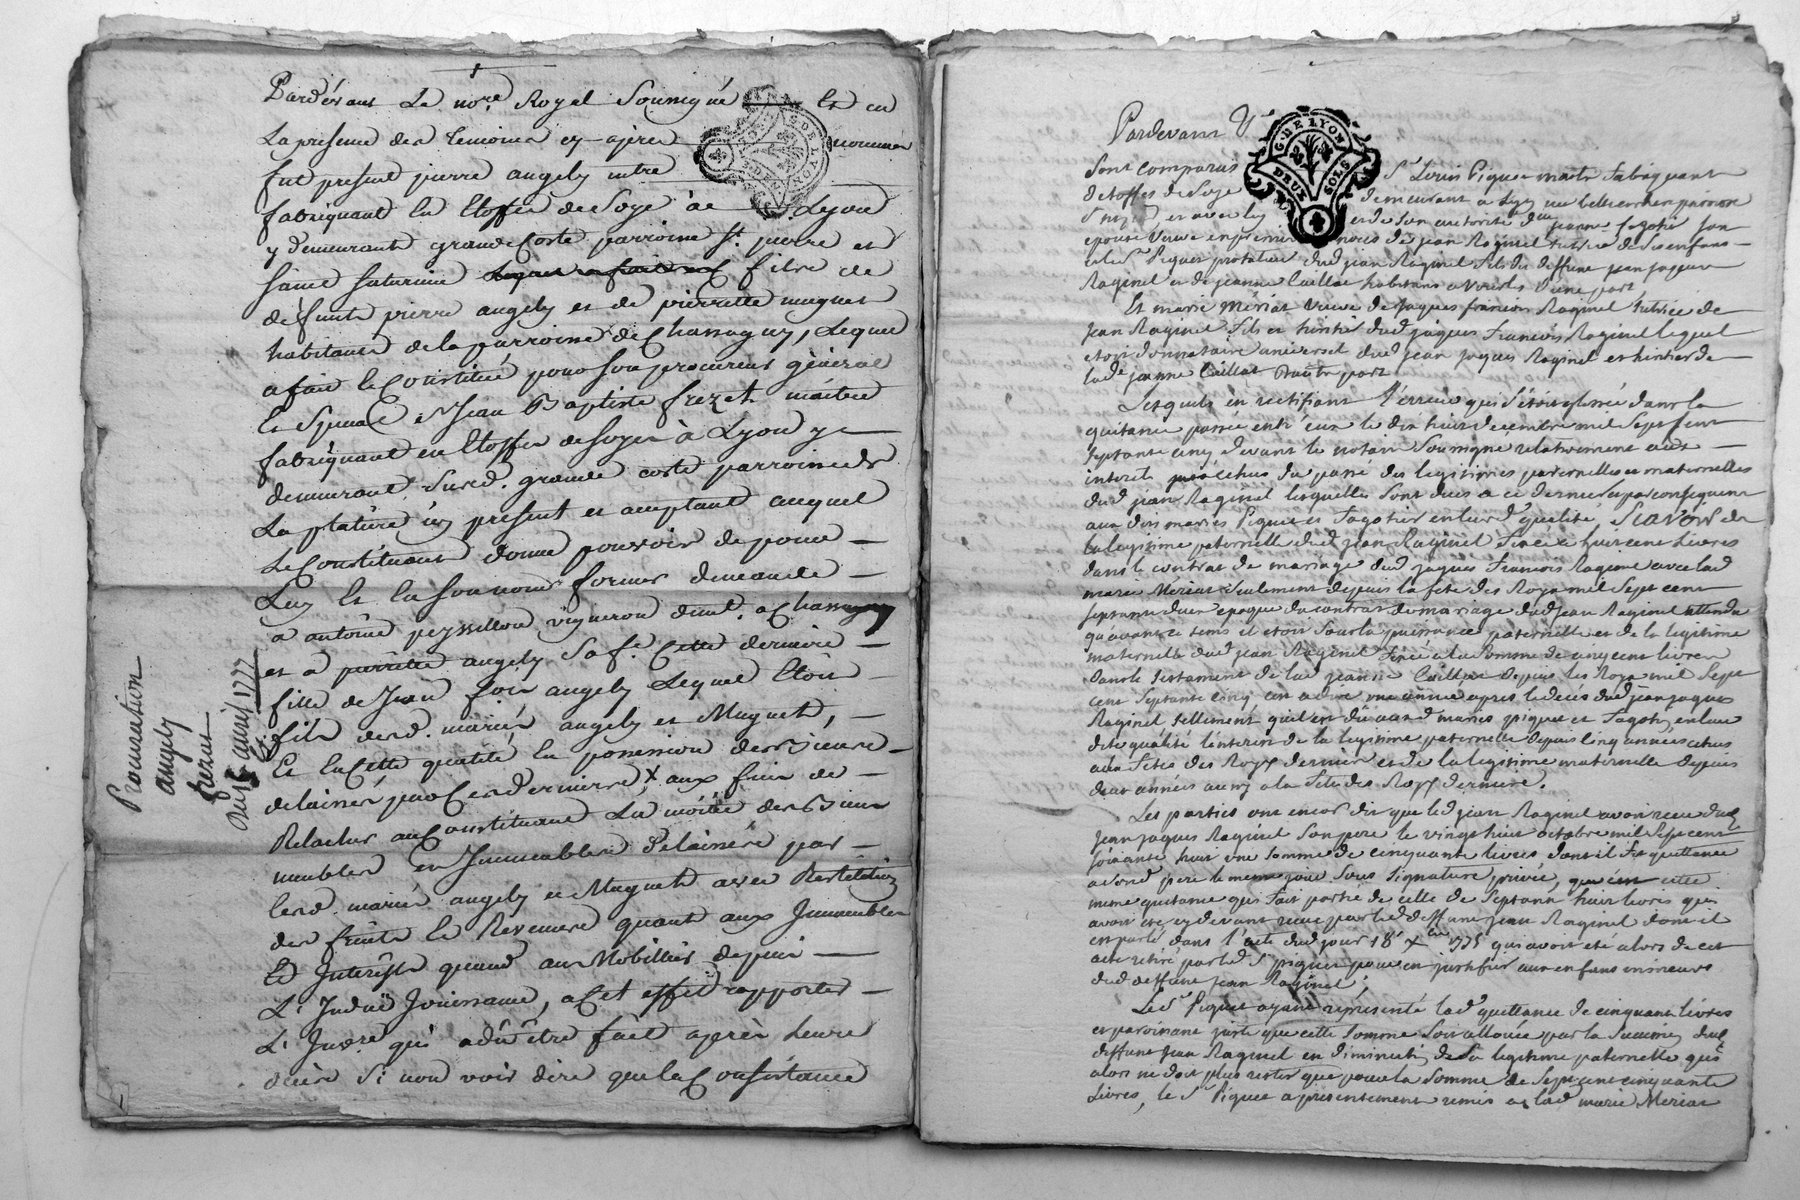 Pardevant Le no.re Royal Soussigné Et en
La presence des temoins cy-après nommés
fut present pierre angely mtre
fabriquant En Etoffes de Soye à Lyon
y demeurant grande Coste parroisse St. pierre et
Saint Saturnin fils de
défunts pierre angely et de pierrette muguet
habitants de la parroisse de Chassagny, Lequel
a fait & Constitué pour son procureur général
Et Special sr Jean Baptiste frezet maitre
fabriquant en Etoffes de soyes à Lyon y
demeurant Susd. grande coste parroisse de
La platiere icy present et acceptant auquel
Le Constituant donne pouvoir de pour
Luy Et En son nom former demande
a antoine peyssillon vigneron demt. a Chassagny
et a pierrette angely Sa fe. Cette derniere
fille de Jean angely Lequel Etoit
fils desd. mariés angely et Muguet,
Et En Cette qualité En possession des Biens
delaissés par Ces derniers, aux fins de
Relacher au Constituant La moitié des Biens
meubles et Immeubles delaissés par
lesd. mariés angely et Muguet avec Restitution
des fruits & Revenus quant aux Immeubles
Et Interêsts quand au Mobillier depuis
L'Indüe Jouissance, a Cet effet rapporter
L'Invre. qui a dû être fait après Leurs
décès Si non voir dire que la Consistance
Procuration
angely
frezet
Du 5 avril 1777
Pardevant
G. DE LYON
DEUX SOLS
Sont comparus Sr Louis Piquet maitre fabriquant
d'etoffes de Soye demeurant a Lyon rue paroisse
St nizier et avec luy et de son autorité dlle jeanne fagotier son
epouse Veuve en premieres noces de jean Raginel tutrice de ses enfans
Raginel et de jeanne Caillat habitans a Vourles d'une part
Et marie Meriat Veuve de jaques françois Raginel tutrice de
jean Raginel fils et heritier dud jaques françois Raginel lequel
etoit donnataire universel dud jean jaques Raginel et heritier de
lade jeanne Caillat d'autre part
Lesquels en rectifiant l'erreur qui s'étoit glissée dans la
quitance passée entr'eux le dix huit decembre mil Sept cent
Septante cinq devant le notaire Soussigné relativement aux
interets echus du passé des legitimes paternelles et maternelles
dud jean Raginel lesquelles sont dues a ce dernier et par conséquent
aux dits mariés Piquet et fagotier en leur d. qualité, SCAVOIR de
la legitime paternelle dud jean Raginel fixée a huit cent Livres
dans le contrat de mariage dud jaques François Raginel avec lad
marie Meriat Seulement depuis la fete des Roys mil Sept cent
septante deux epoque du contrat de mariage dud jean Raginel attendu
qu'avant ce tems il etoit sous la puissance paternelle et de la legitime
maternelle dud jean Raginel fixée a la Somme de cinq cent livres
dans le testament de lad jeanne Caillat depuis les Roys mil Sept
cent Septante cinq une année apres le decés dud jean jaques
Raginel tellement qu'il est dû aux d. mariés piquet et fagotier en leur
dite qualité l'interest de la legitime paternelle depuis cinq années echus
aux fetes des Roys dernier et de la legitime maternelle depuis
deux années aussy a la fete des Roys derniere.
Les parties ont encor dit que led jean Raginel avoit reçu dud
jean jaques Raginel Son pere le vingt huit octobre mil Sept cent
soixante huit une somme de cinquante livres dont il fit quittance
a Sond pere le meme jour Sous Signature privée, que cette
meme quitance qui fait partie de celle de Septante huit livres que
avoit cy devant reçue par led deffunt jean Raginel dont il
est parlé dans l'acte dud jour 18e Xbre 1775 qui avoit eté alors de cet
acte retiré par led Sr piquet pour en justifier aux enfans mineurs
dud deffunt jean Raginel,
Led Sr Piquet ayant representé lad quittance de cinquante livres
et paroissant juste que cette Somme Soit allouée par la Succession dud
deffunt jean Raginel en diminution de Sa legitime paternelle qui
alors ne doit plus rester que pour la Somme de Sept cent cinquante
Livres, le Sr Piquet a présentement remis a lad marie Meriat